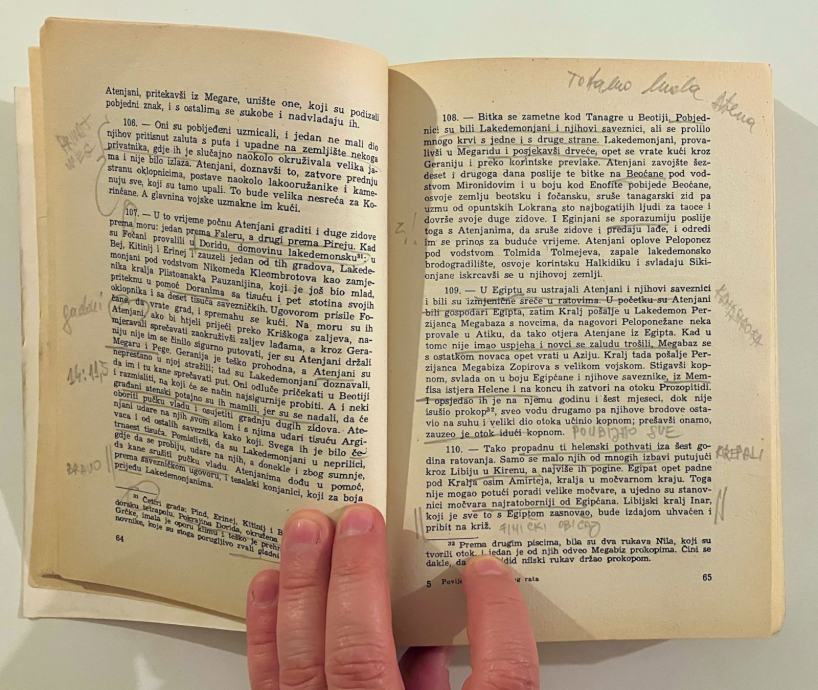 Atenjani, pritekavši iz Megare, unište one, koji su podizali
pobjedni znak, i s ostalima se sukobe i nadvladaju ih.
106. — Oni su pobijeđeni uzmicali, i jedan ne mali dio
njihov pritisnut zaluta s puta i upadne na zemljište nekoga
privatnika, gdje ih je slučajno naokolo okruživala velika ja-
ma i nije bilo izlaza. Atenjani, doznavši to, zatvore prednju
stranu oklopnicima, postave naokolo lakooružanike i kame-
nuju sve, koji su tamo upali. To bude velika nesreća za Ko-
rinćane. A glavnina vojske uzmakne im kući.
107. — U to vrijeme počnu Atenjani graditi i duge zidove
prema moru: jedan prema Faleru, a drugi prema Pireju. Kad
su Fočani provalili u Doridu, domovinu lakedemonsku³¹, u
Bej, Kitinij i Erinej i zauzeli jedan od tih gradova, Lakede-
monjani pod vodstvom Nikomeda Kleombrotova kao zamje-
nika kralja Plistoanakta Pauzanijina, koji je još bio mlad,
priteknu u pomoć Doranima sa tisuću i pet stotina svojih
oklopnika i sa deset tisuća savezničkih. Ugovorom prisile Fo-
čane, da vrate grad, i spremahu se kući. Na moru su ih
Atenjani, ako bi htjeli prijeći preko Kriškoga zaljeva, na-
mjeravali sprečavati zaokruživši zaljev lađama, a kroz Gera-
niju nije im se činilo sigurno putovati, jer su Atenjani držali
Megaru i Pege. Geranija je teško prohodna, a Atenjani su
neprestano u njoj stražili; tad su Lakedemonjani doznavali,
da im i tu kane sprečavati put. Oni odluče pričekati u Beotiji
i razmisliti, na koji će se način najsigurnije probiti. A i neki
građani atenski potajno su ih mamili, jer su se nadali, da će
oboriti pučku vladu i osujetiti gradnju dugih zidova. Ate-
njani udare na njih svom silom i s njima udari tisuću Argi-
vaca i od ostalih saveznika kako koji. Svega ih je bilo če-
trnaest tisuća. Pomislivši, da su Lakedemonjani u neprilici,
gdje da se probiju, udare na njih, a donekle i zbog sumnje,
da kane srušiti pučku vladu. Atenjanima dođu u pomoć,
prema savezničkom ugovoru, i tesalski konjanici, koji za boja
prijeđu Lakedemonjanima.
³¹ Četiri grada; Pind, Erinej, Kitinij i B
dorsku tetrapolu. Pokrajina Dorida, okružena
Grčke, imala je oporu klimu i teško je prehr
novnike, koje su stoga porugljivo zvali gladni
64
Totalno
Atena
108. — Bitka se zametne kod Tanagre u Beotiji. Pobjed-
nici su bili Lakedemonjani i njihovi saveznici, ali se prolilo
mnogo krvi s jedne i s druge strane. Lakedemonjani, prova-
livši u Megaridu i posjekavši drveće, opet se vrate kući kroz
Geraniju i preko korintske prevlake. Atenjani zavojšte šez-
deset i drugoga dana poslije te bitke na Beoćane pod vod-
stvom Mironidovim i u boju kod Enofite pobijede Beoćane,
osvoje zemlju beotsku i fočansku, sruše tanagarski zid pa
uzmu od opuntskih Lokrana sto najbogatijih ljudi za taoce i
dovrše svoje duge zidove. I Eginjani se sporazumiju poslije
toga s Atenjanima, da sruše zidove i predaju lađe, i odredi
im se prinos za buduće vrijeme. Atenjani oplove Peloponez
pod vodstvom Tolmida Tolmejeva, zapale lakedemonsko
brodogradilište, osvoje korintsku Halkidiku i svladaju Siki-
onjane iskrcavši se u njihovoj zemlji.
109. — U Egiptu su ustrajali Atenjani i njihovi saveznici
i bili su izmjenične sreće u ratovima. U početku su Atenjani
bili gospodari Egipta, zatim Kralj pošalje u Lakedemon Per-
zijanca Megabaza s novcima, da nagovori Peloponežane neka
provale u Atiku, da tako otjera Atenjane iz Egipta. Kad u
tome nije imao uspjeha i novci se zaludu trošili, Megabaz se
s ostatkom novaca opet vrati u Aziju. Kralj tada pošalje Per-
zijanca Megabiza Zopirova s velikom vojskom. Stigavši kop-
nom, svlada on u boju Egipćane i njihove saveznike, iz Mem-
fisa istjera Helene i na koncu ih zatvori na otoku Prozopitidi.
I opsjedao ih je na njemu godinu i šest mjeseci, dok nije
isušio prokop³², svео vodu drugamo pa njihove brodove osta-
vio na suhu i veliki dio otoka učinio kopnom; prešavši onamo,
zauzeo je otok idući kopnom. POUBIJAO SVE
110. — Tako propadnu ti helenski pothvati iza šest go-
dina ratovanja. Samo se malo njih od mnogih izbavi putujući
kroz Libiju u Kirenu, a najviše ih pogine. Egipat opet padne
pod Kralja osim Amirteja, kralja u močvarnom kraju. Toga
nije mogao potući poradi velike močvare, a ujedno su stanov-
nici močvara najratoborniji od Egipćana. Libijski kralj Inar,
koji je sve to s Egiptom zasnovao, bude izdajom uhvaćen i
pribit na križ.
³² Prema drugim piscima, bila su dva rukava Nila, koji su
tvorili otok, i jedan je od njih odveo Megabiz prokopima. Čini se
dakle, da
did nilski rukav držao prokopom.
5 Povije
og rata
65
14.11,5
BRAVO
KREPALI